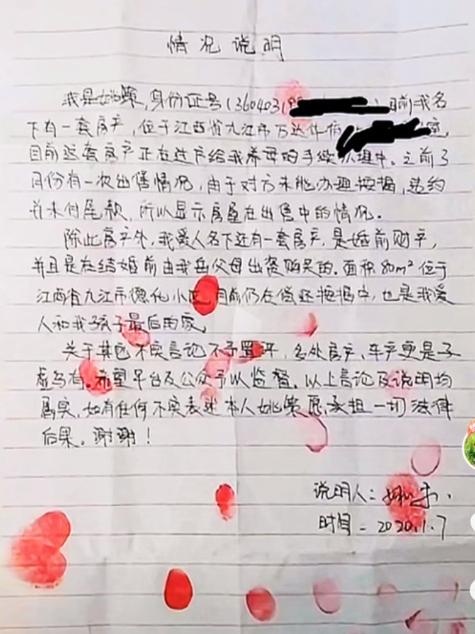 情况说明
我是姚策,身份证号(360403199 ),目前我名
下有一套房产,位于江西省九江市万达
目前这套房产正在过户给我养母的手续办理中。之前3
月份有一次出售情况,由于对方未能办理按揭,违约
并未付尾款,所以显示房屋在出售中的情况。
除此房产外,我爱人名下还有一套房产,是婚前财产,
并且是在结婚前由我岳父母出资购买的。面积80m²位于
江西省九江市德化小区目前仍在偿还按揭中,也是我爱
人和我孩子最后的家。
关于其它不实言论不予置评,名处房产、车产更是子
虚乌有。希望平台及公众予以监督。以上言论及说明均
属实,如有任何不实表述本人姚策愿承担一切法律
后果。谢谢!
说明人:姚策.
时间-2020.1.7